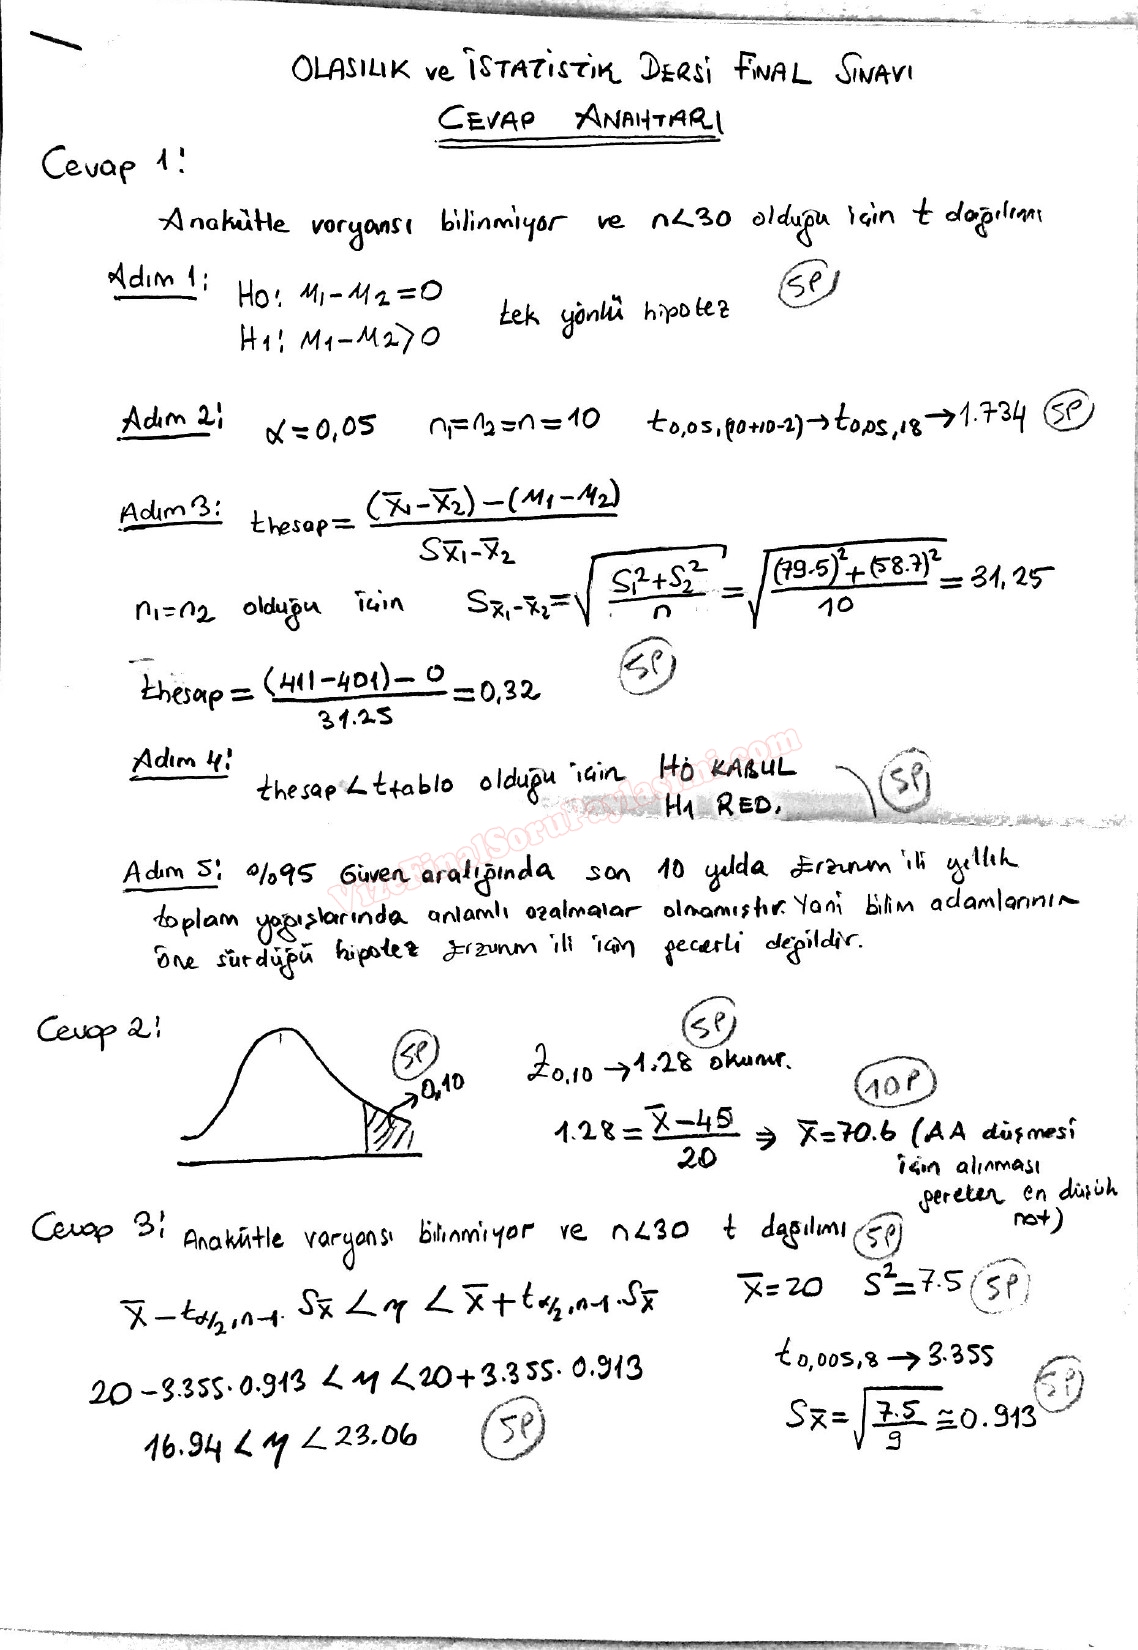 OLASILIK ve İSTATİSTİK DERSİ FİNAL SINAVI
CEVAP ANAHTARI
Cevap 1:
Anakütle varyansı bilinmiyor ve n<30 olduğu için t dağılımı
Adım 1: H0: M1-M2=0
H1: M1-M2>0
tek yönlü hipotez
5P
Adım 2: α=0,05 n1=n2=n=10 t0,05,(10+10-2)→t0,05,18→1.734 5P
Adım 3: thesap= (x̄1-x̄2)-(M1-M2) / Sx̄1-x̄2
n1=n2 olduğu için Sx̄1-x̄2=√((S1²+S2²)/n) = √(((79.5)²+(58.7)²)/10) = 31,25
5P
thesap = ((411-401)-0)/31.25 = 0,32
Adım 4: thesap < ttablo olduğu için H0 KABUL
H1 RED.
5P
VizeFinalSoruPaylasimi.com
Adım 5: %95 Güven aralığında son 10 yılda Erzurum ili yıllık
toplam yağışlarında anlamlı azalmalar olmamıştır. Yani bilim adamlarının
öne sürdüğü hipotez Erzurum ili için geçerli değildir.
Cevap 2:
5P
0,10
5P
Z0,10 → 1.28 okunur.
10P
1.28 = (x̄-45)/20 ⇒ x̄=70.6 (AA düşmesi
için alınması
gereken en düşük
not)
Cevap 3: Anakütle varyansı bilinmiyor ve n<30 t dağılımı 5P
x̄-tα/2,n-1. Sx̄ < μ < x̄+tα/2,n-1.Sx̄
x̄=20 S²=7.5 5P
t0,005,8 → 3.355
20-3.355.0.913 < μ < 20+3.355.0.913
Sx̄=√(7.5/9) ≅ 0.913 5P
16.94 < μ < 23.06 5P